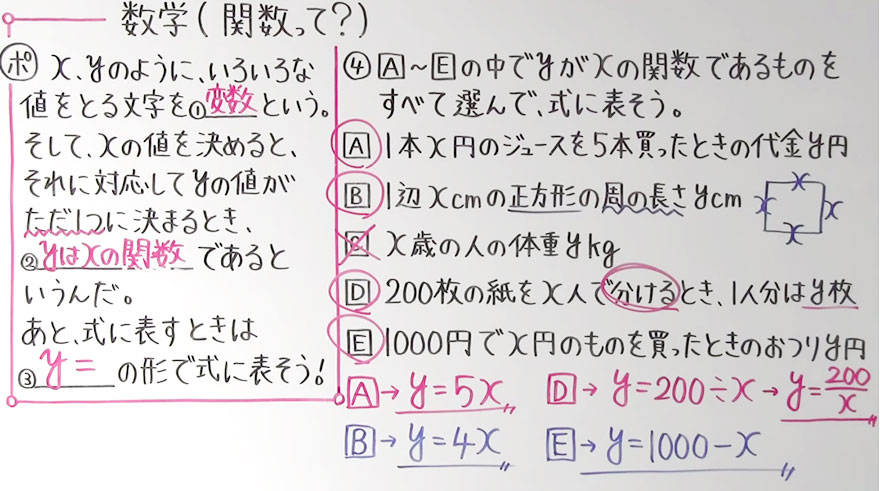 数学(関数って?)
ポ x、yのように、いろいろな
値をとる文字を①変数という。
そして、xの値を決めると、
それに対応してyの値が
ただ1つに決まるとき、
②yはxの関数であると
いうんだ。
あと、式に表すときは
③y=の形で式に表そう!
④A~Eの中でyがxの関数であるものを
すべて選んで、式に表そう。
A 1本x円のジュースを5本買ったときの代金y円
B 1辺xcmの正方形の周の長さycm
x
x
x
x
C x歳の人の体重ykg
D 200枚の紙をx人で分けるとき、1人分はy枚
E 1000円でx円のものを買ったときのおつりy円
A→y=5x
D→y=200÷x→y=200/x
B→y=4x
E→y=1000-x